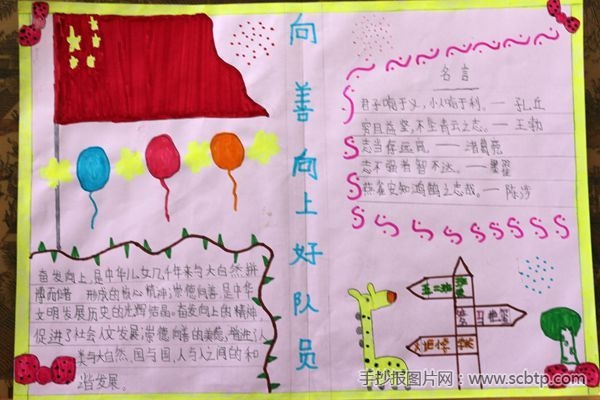 向善向上好队员
名言
君子喻于义,小人喻于利。— 孔丘
穷且益坚,不坠青云之志。— 王勃
志当存高远。— 诸葛亮
志不强者智不达。— 墨翟
燕雀安知鸿鹄之志哉。— 陈涉
奋发向上,是中华儿女几千年来与大自然拼
搏而 形成的核心精神;崇德向善,是中华
文明发展历史的光辉结晶。奋发向上的精神,
促进了社会人文发展;崇德向善的美德,增进了人
类与大自然、国与国、人与人之间的和
谐发展。
手抄报图片网:www.scbtp.com